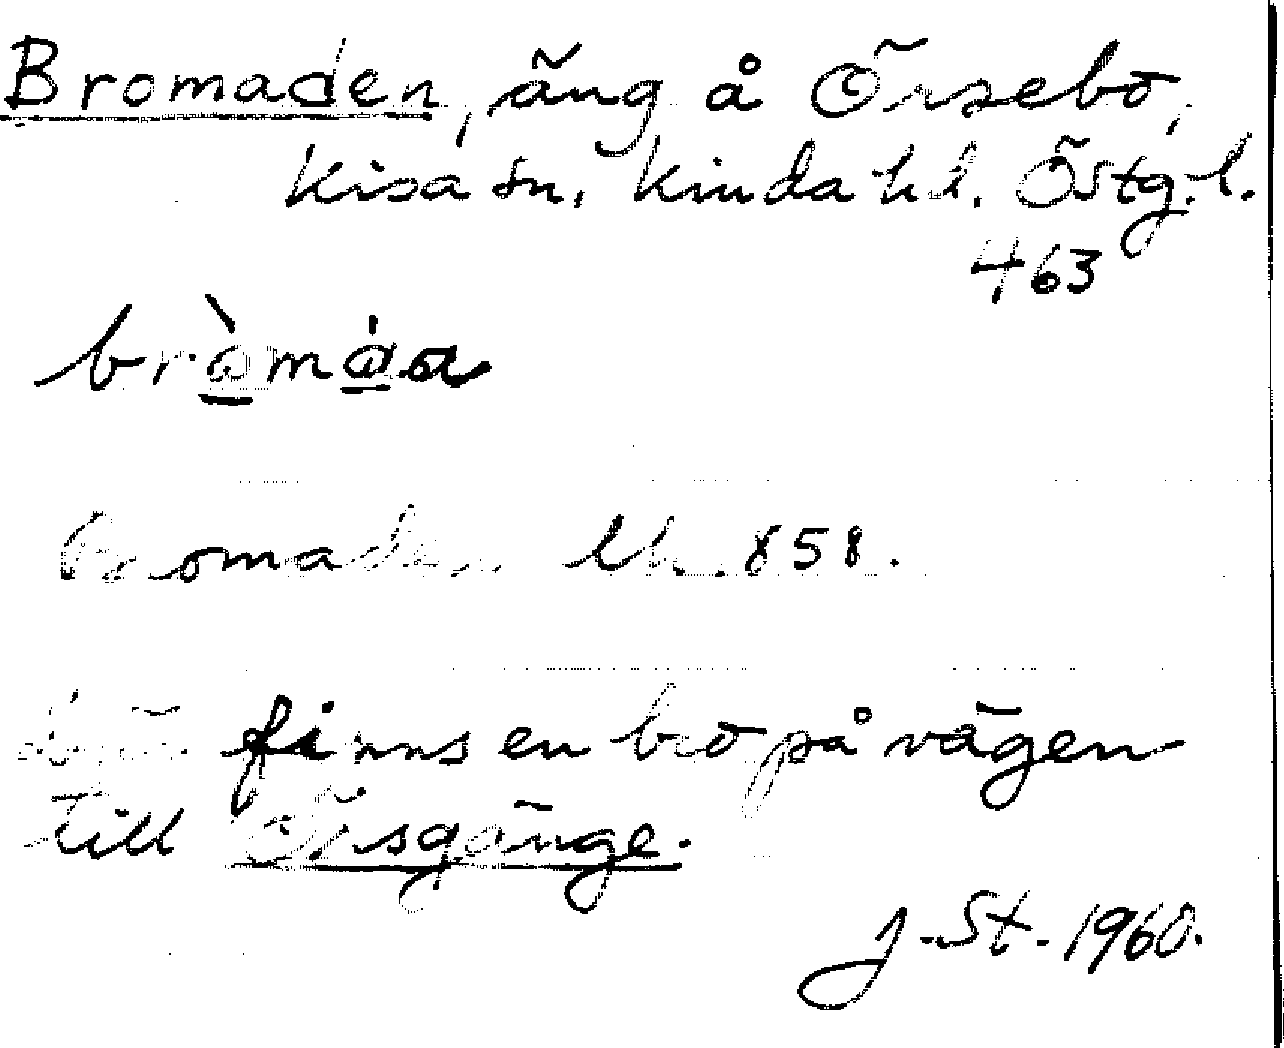 Bromaden, äng å Örsebo,
Kisa sn, Kinda hd. Östg. l.
463
bròmáa
Bromaden Uh. 858.
där finns en bro på vägen
till Örsgänge.
J. St. 1960.